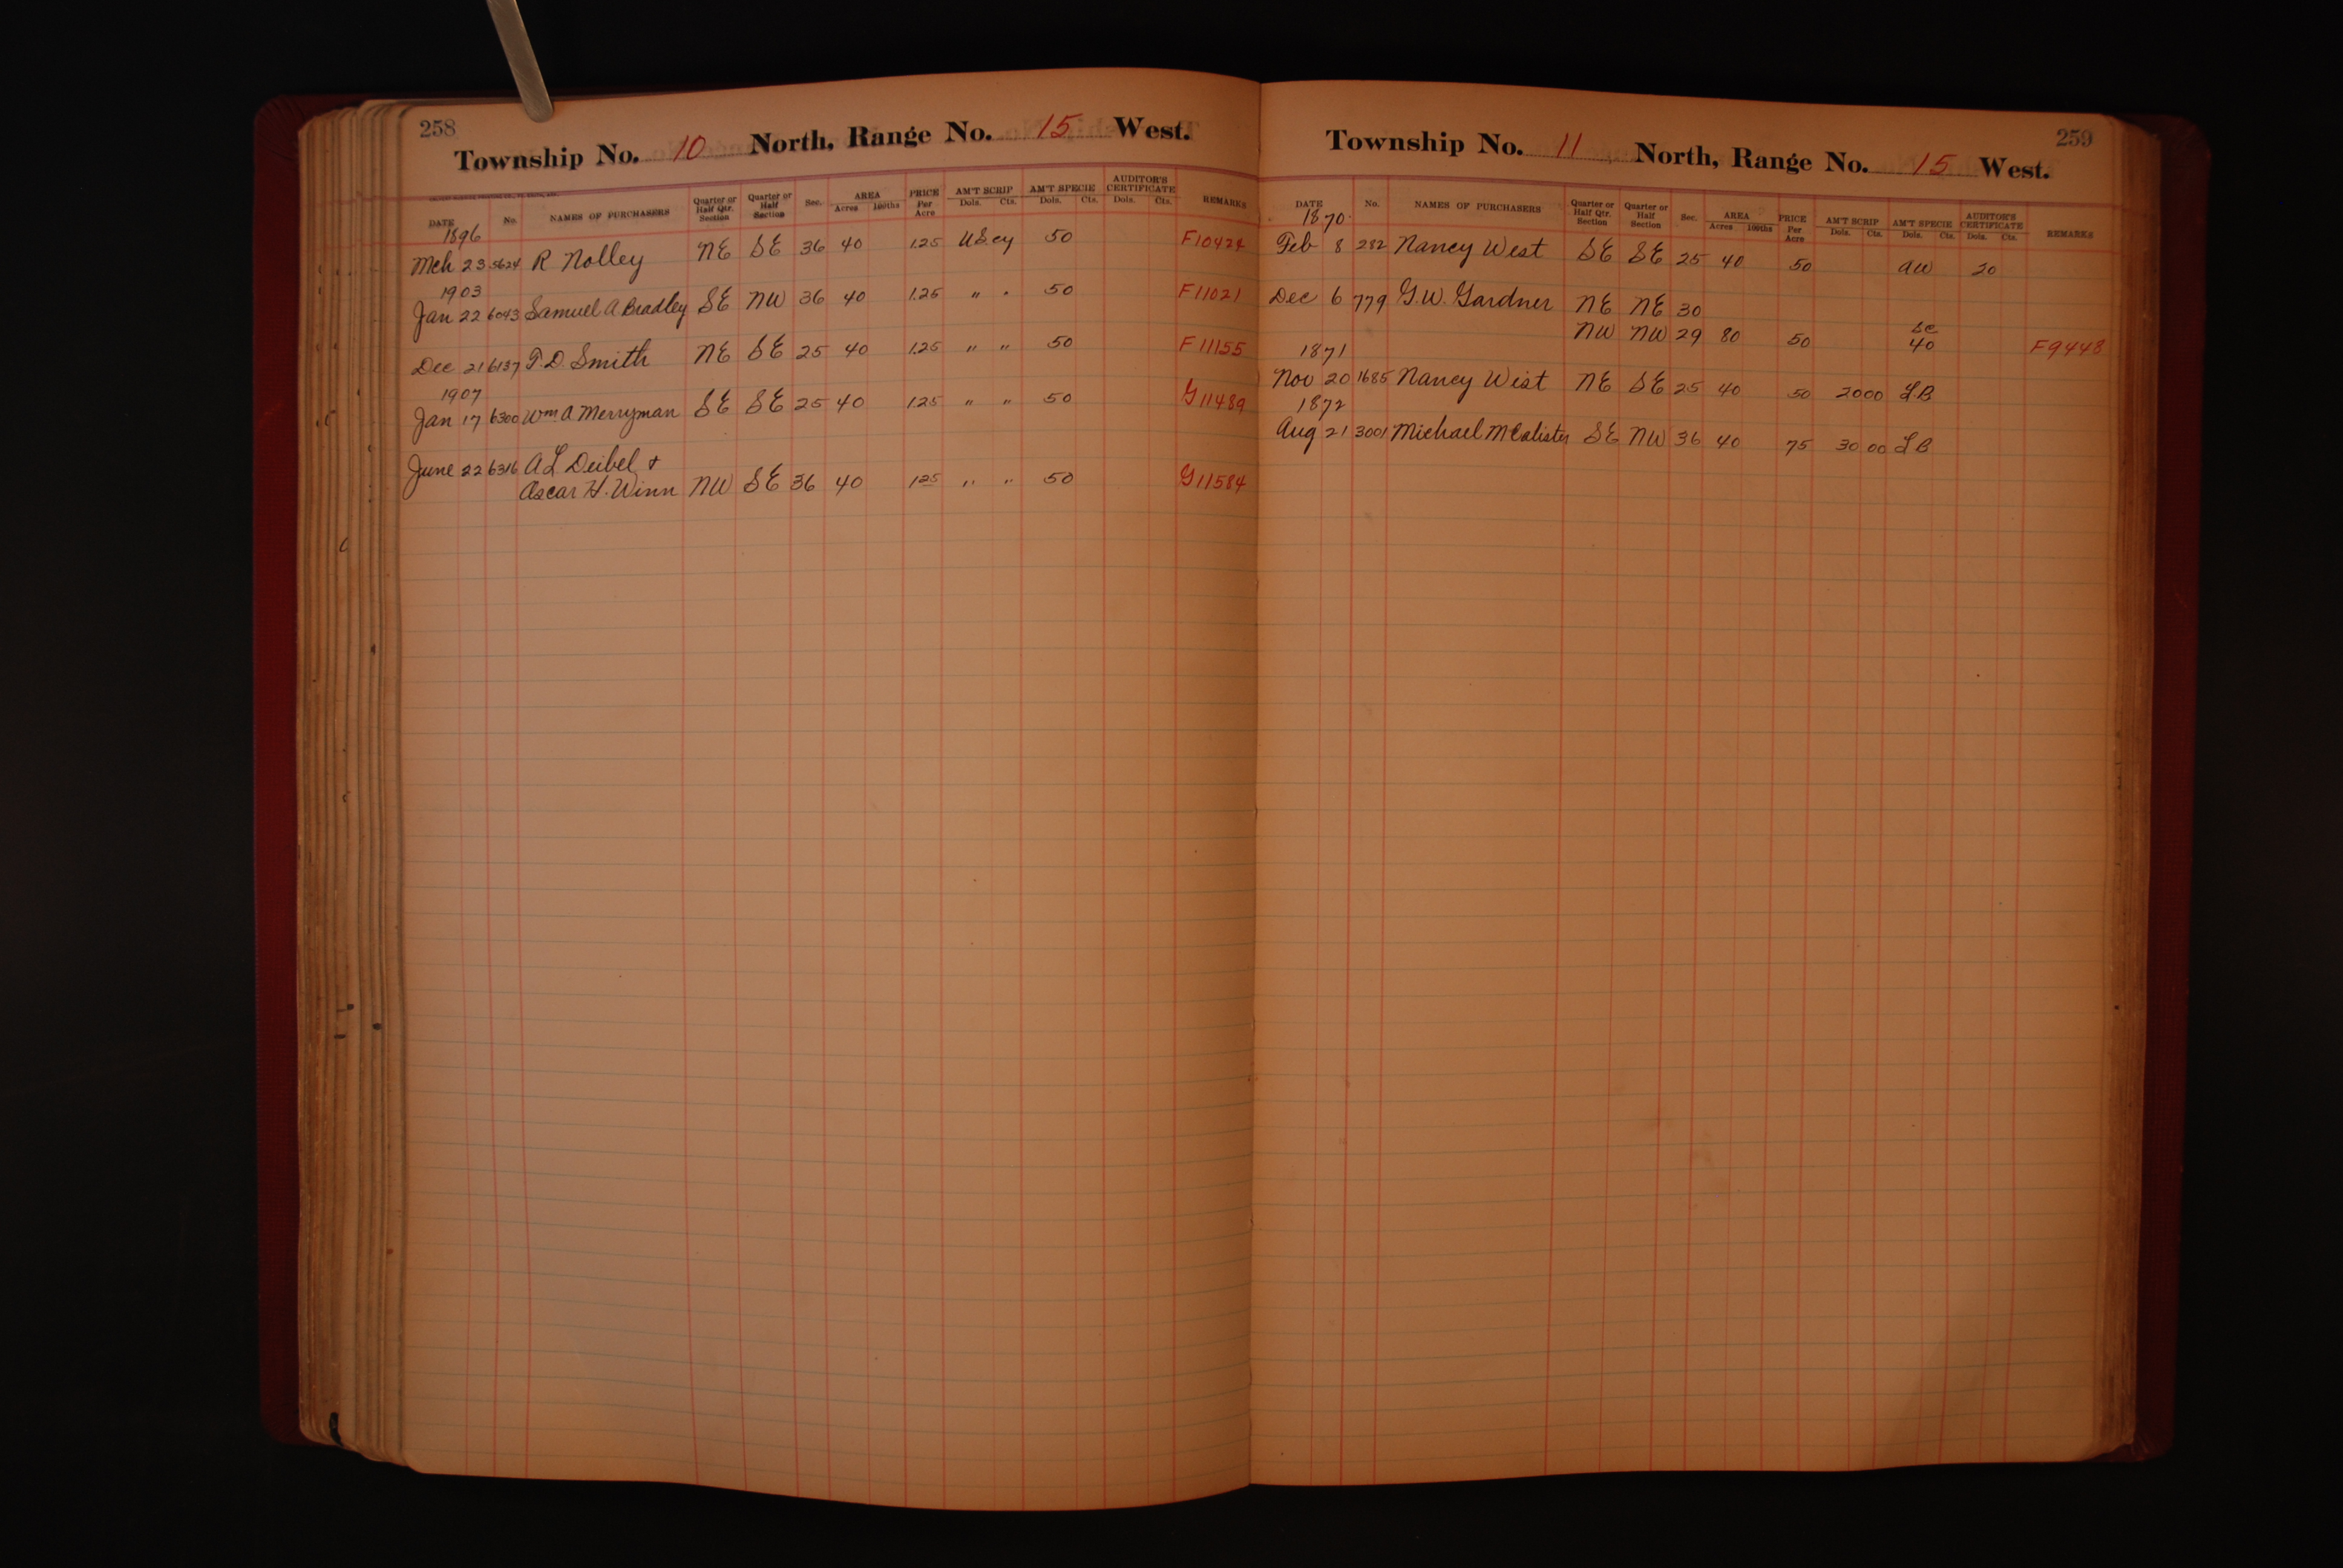 258
Township No. 10 North, Range No. 15 West.
DATE No. NAMES OF PURCHASERS Quarter or Half Qtr. Section Quarter or Half Section Sec. AREA Acres 100ths PRICE Per Acre AM'T SCRIP Dols. Cts. AM'T SPECIE Dols. Cts. AUDITOR'S CERTIFICATE Dols. Cts. REMARKS
1896
Mch 23 5624 R Nolley NE SE 36 40 1.25 U.S.cy 50 F10424
1903
Jan 22 6043 Samuel A Bradley SE NW 36 40 1.25 " " 50 F11021
Dec 21 6137 T. D. Smith NE SE 25 40 1.25 " " 50 F11155
1907
Jan 17 6300 Wm A Merryman SE SE 25 40 1.25 " " 50 G11489
June 22 6316 A L Deibel +
Oscar H. Winn NW SE 36 40 1.25 " " 50 G11584
259
Township No. 11 North, Range No. 15 West.
DATE No. NAMES OF PURCHASERS Quarter or Half Qtr. Section Quarter or Half Section Sec. AREA Acres 100ths PRICE Per Acre AM'T SCRIP Dols. Cts. AM'T SPECIE Dols. Cts. AUDITOR'S CERTIFICATE Dols. Cts. REMARKS
1870
Feb 8 282 Nancy West SE SE 25 40 50 aw 20
Dec 6 779 G. W. Gardner NE NE 30
NW NW 29 80 50 Sc 40 F9448
1871
Nov 20 1685 Nancy West NE SE 25 40 50 20 00 LB
1872
Aug 21 3001 Michael McCalister SE NW 36 40 75 30 00 LB